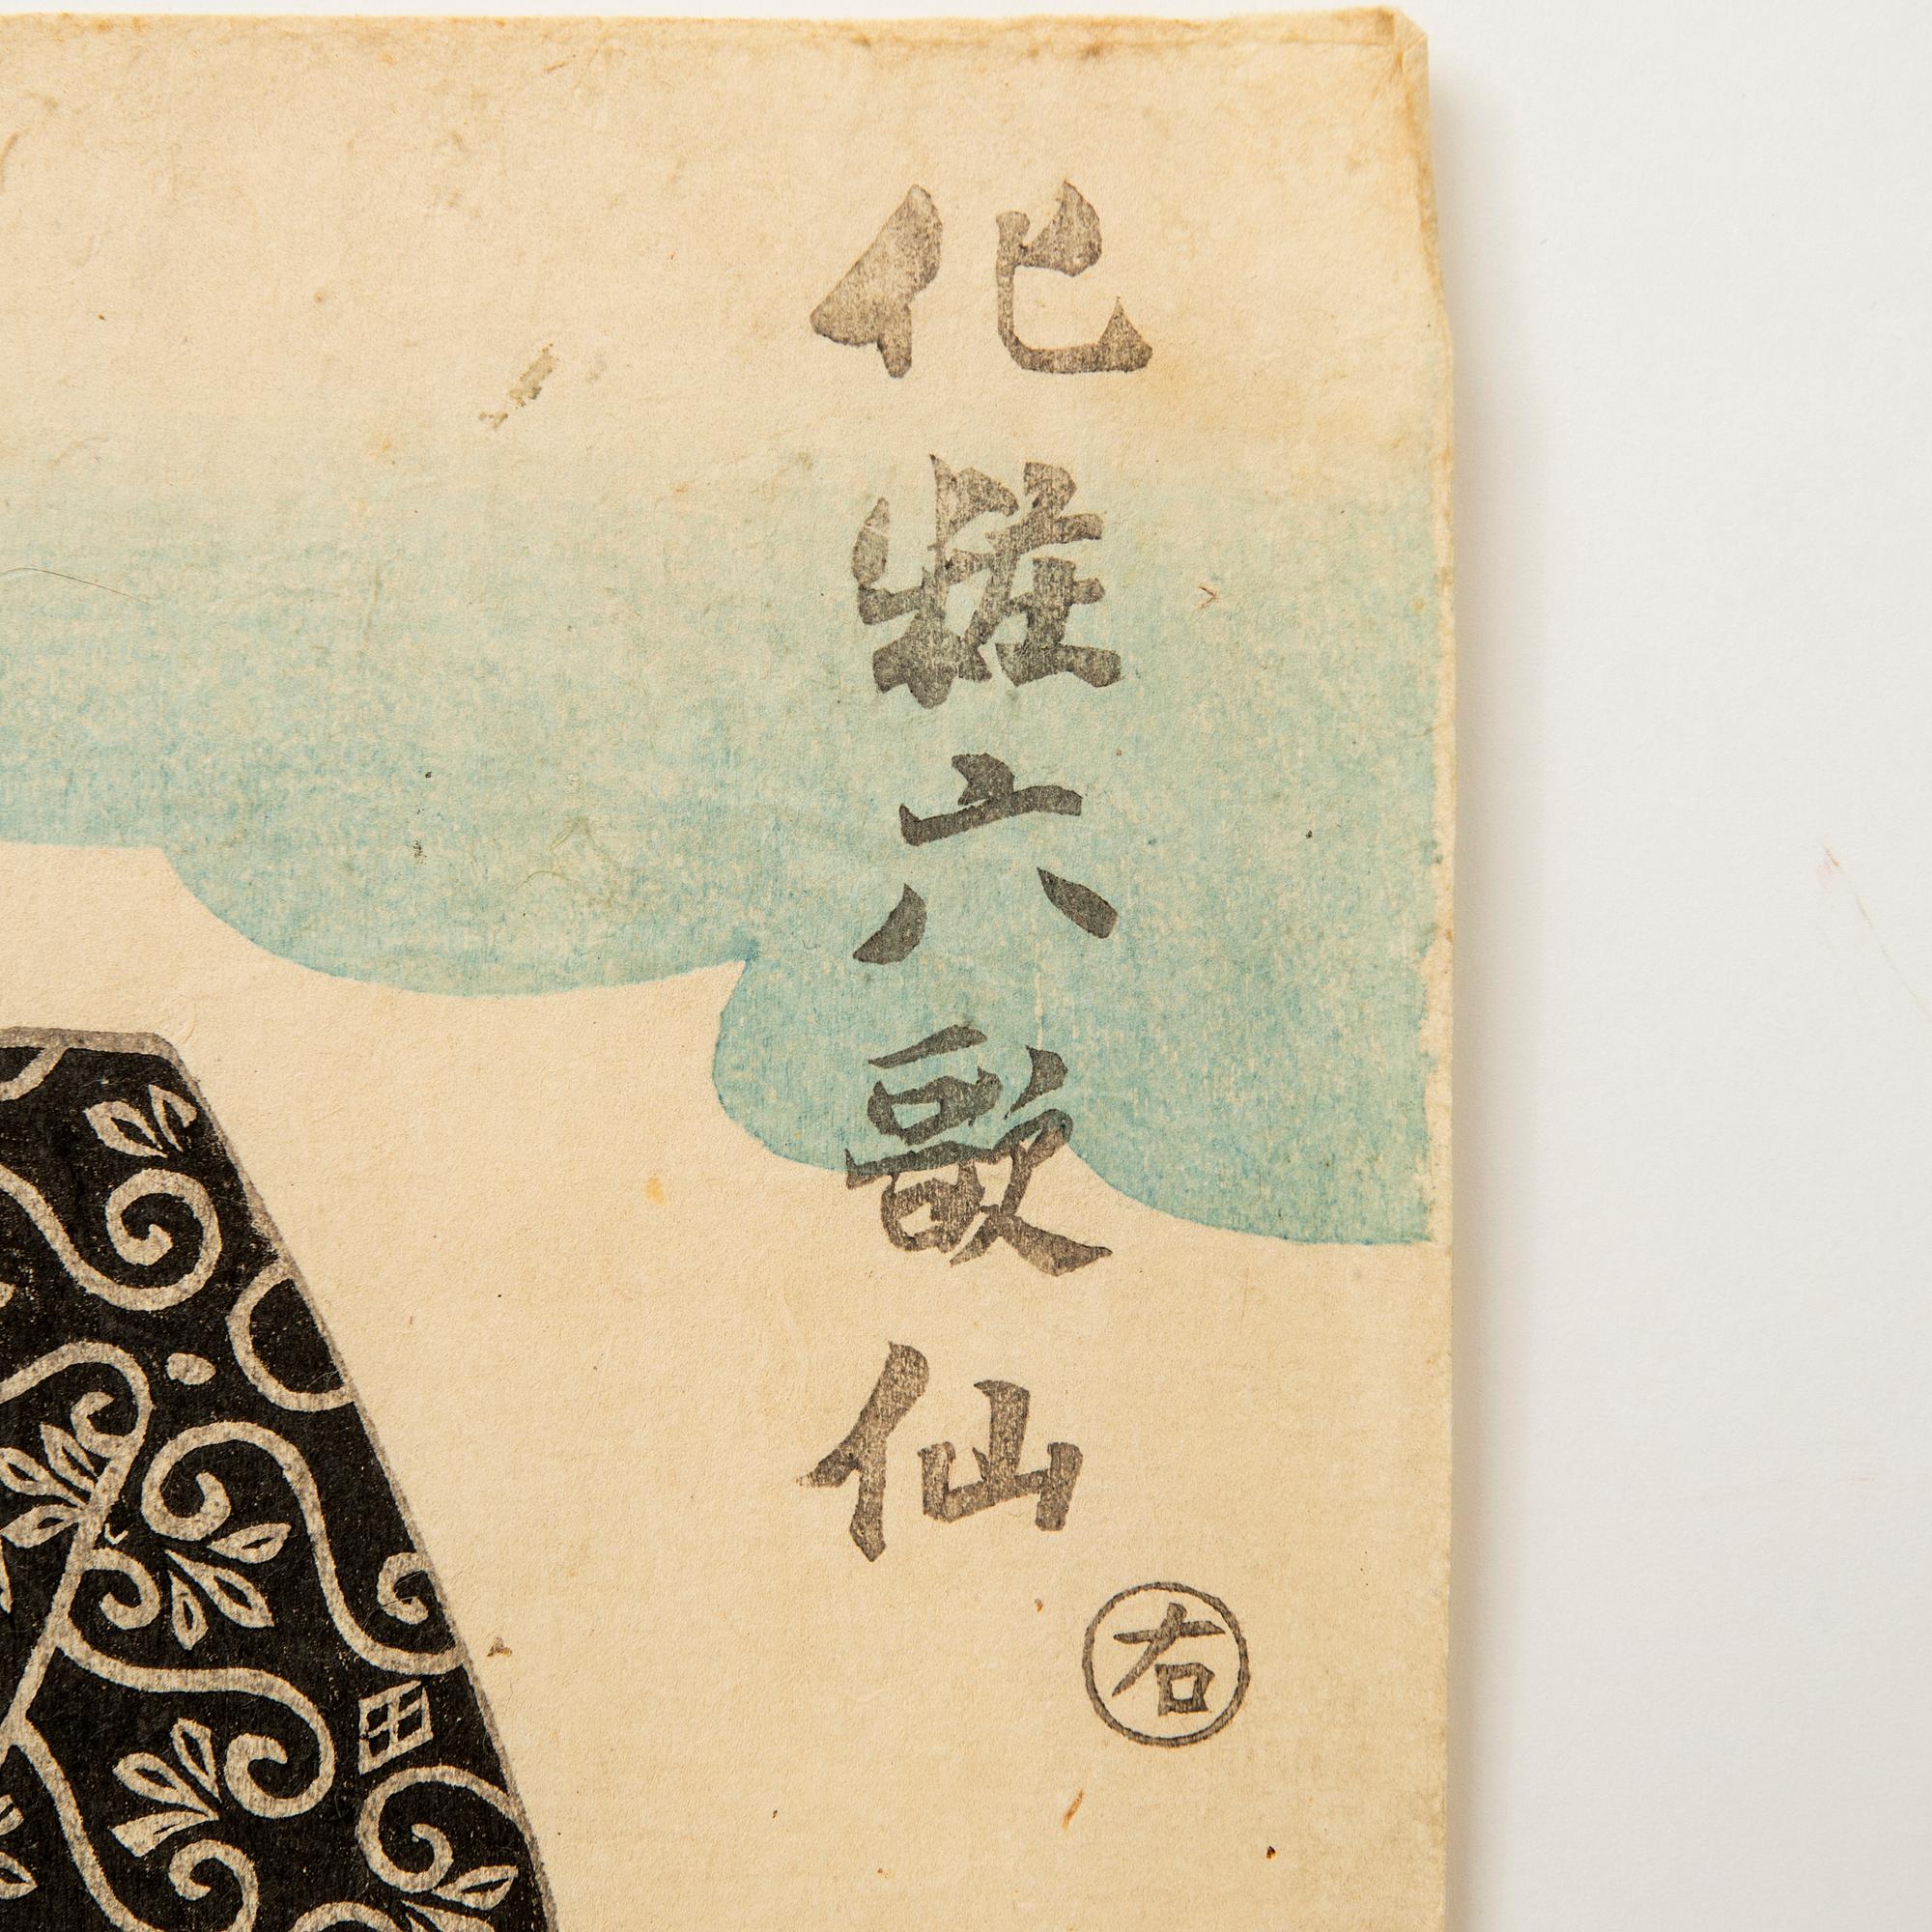 化粧六歌仙
右